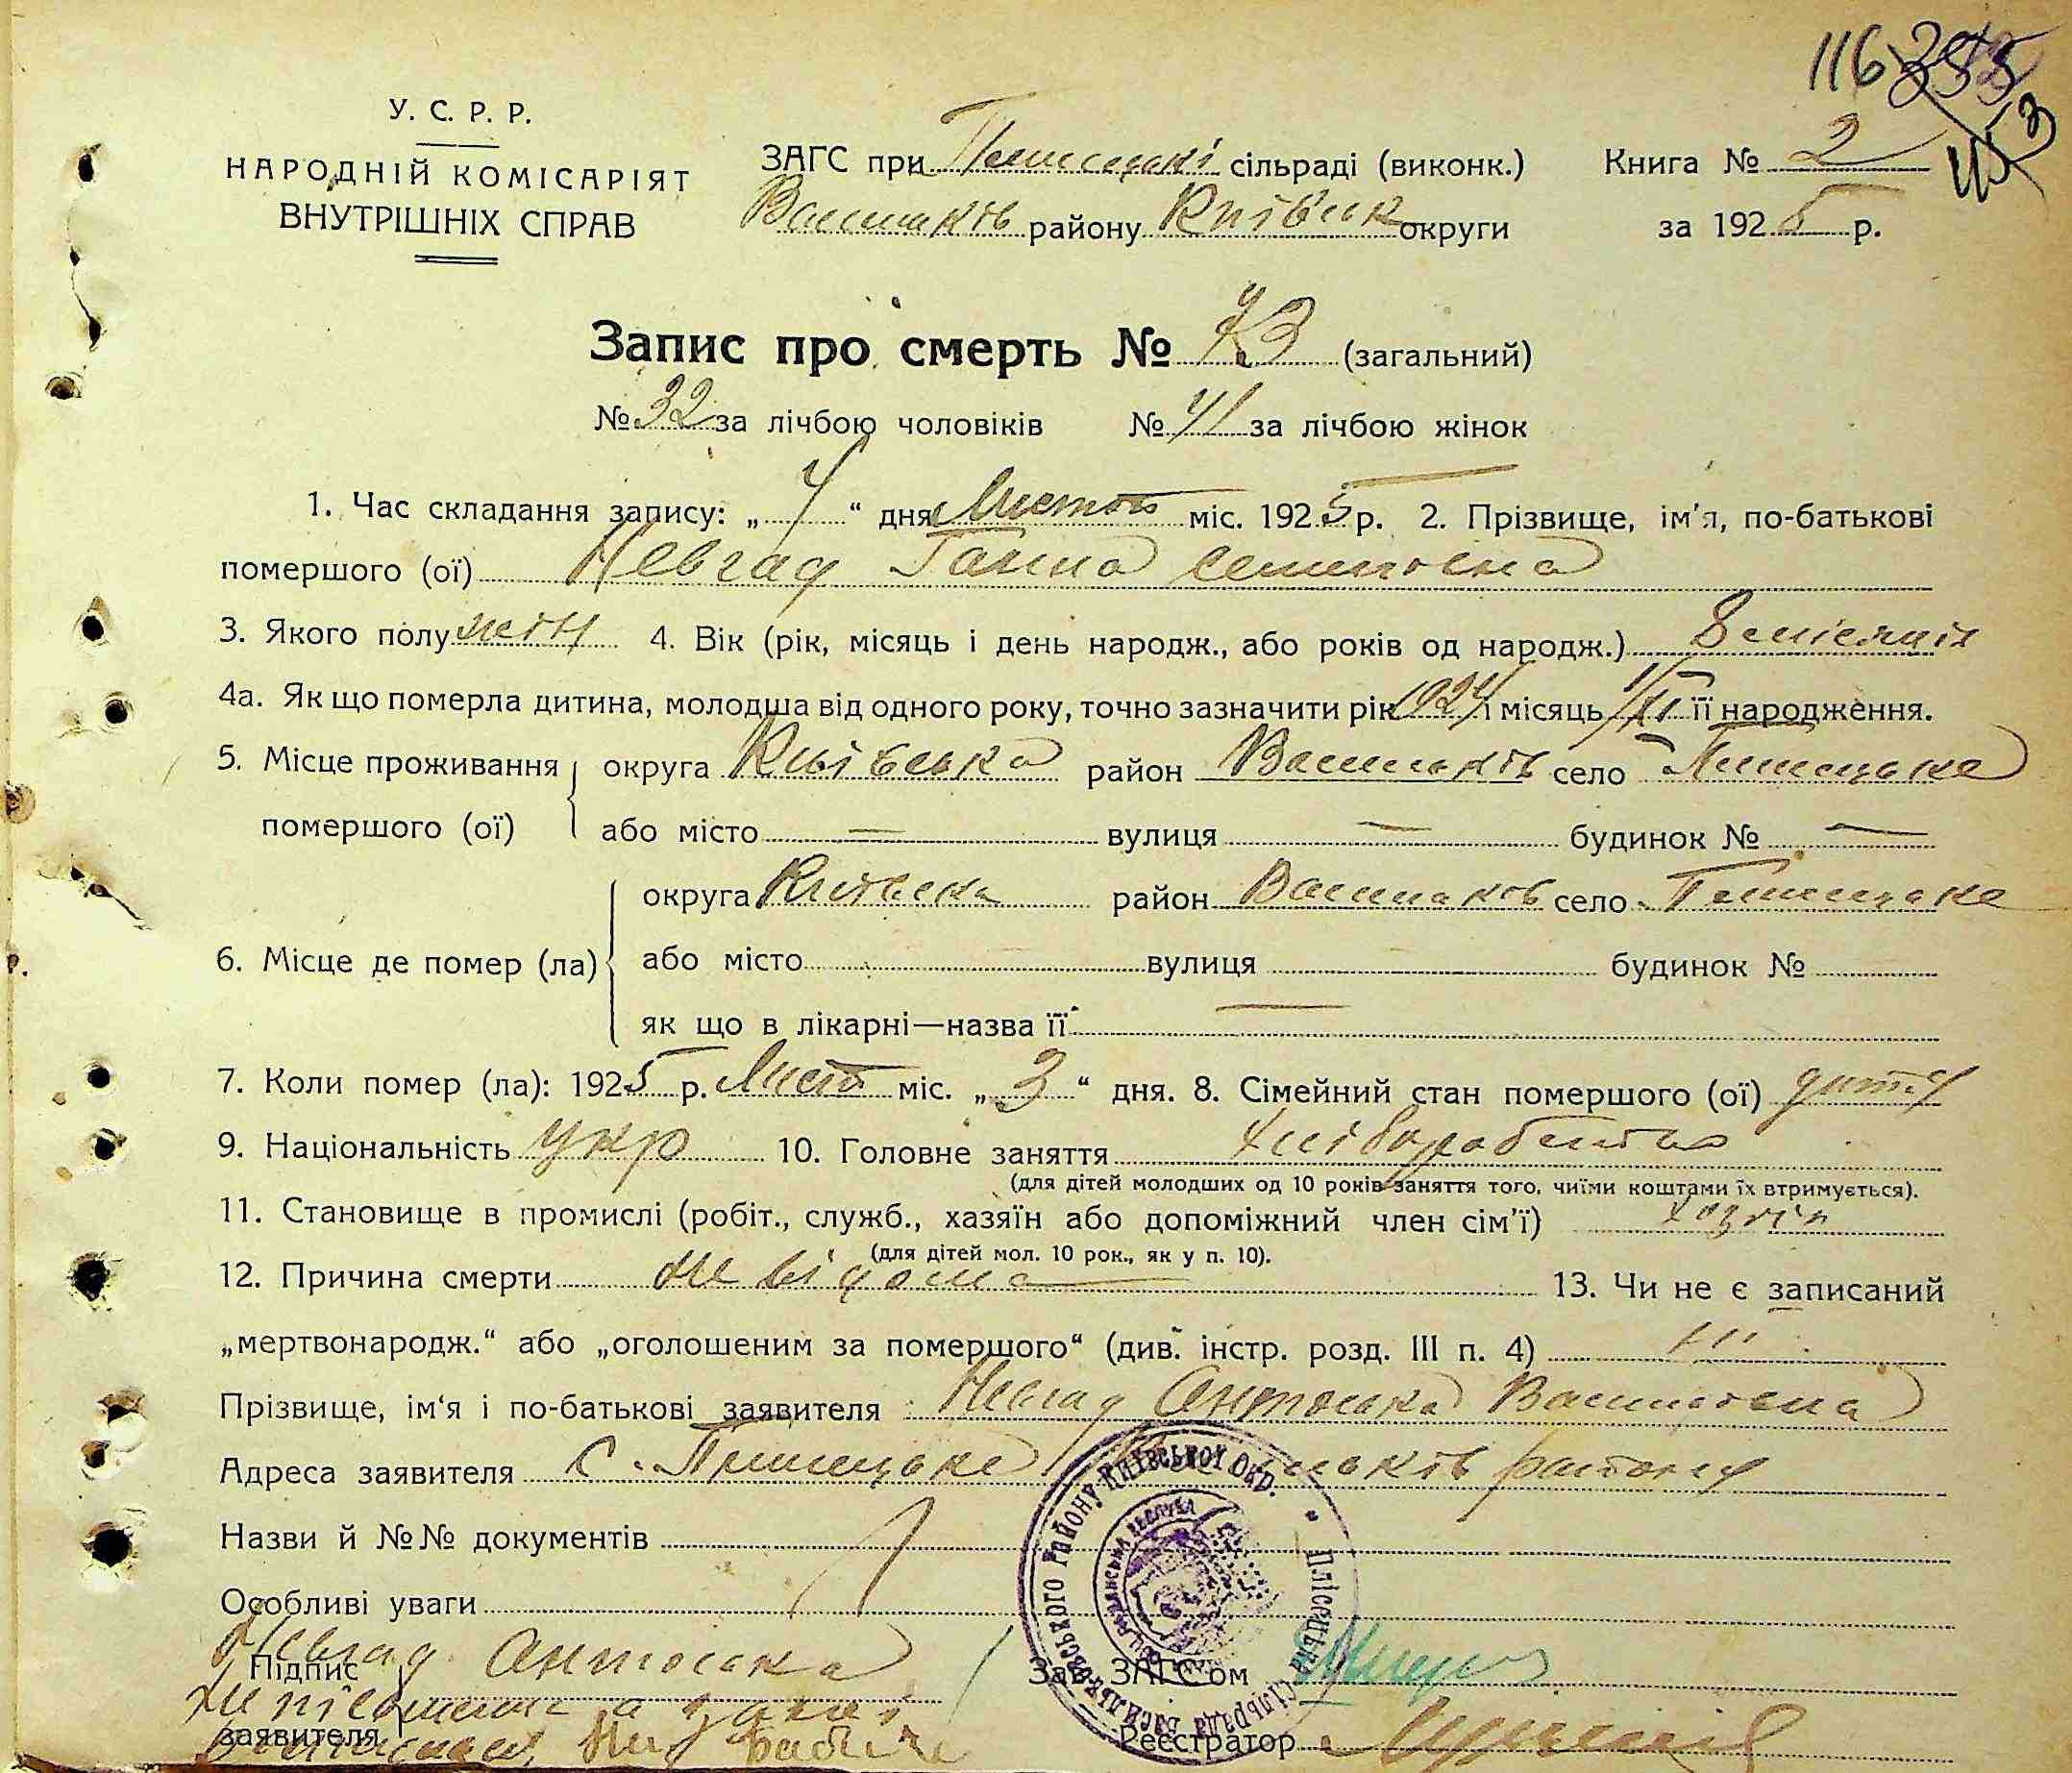 116 355
113
У. С. Р. Р.
НАРОДНІЙ КОМІСАРІЯТ
ВНУТРІШНІХ СПРАВ
ЗАГС при сільраді (виконк.)
Васильків району Київськ округи
Книга № 2
за 1925 р.
Запис про смерть № 73 (загальний)
№ 32 за лічбою чоловіків № 41 за лічбою жінок
1. Час складання запису: „ 4 “ дня Листоп міс. 1925 р. 2. Прізвище, ім'я, по-батькові
помершого (ої) Невгад Ганна Семеновна
3. Якого полу жін 4. Вік (рік, місяць і день народж., або років од народж.) 8 місяців
4а. Як що померла дитина, молодша від одного року, точно зазначити рік 1924 і місяць її народження.
5. Місце проживання помершого (ої) округа Київська район Васильків село Плисецьке
або місто — вулиця — будинок № —
6. Місце де помер (ла) округа Київська район Васильків село Плисецьке
або місто вулиця будинок №
як що в лікарні—назва її —
7. Коли помер (ла): 1925 р. Листо міс. „ 3 “ дня. 8. Сімейний стан помершого (ої) дитя
9. Національність укр 10. Головне заняття хліборобство
(для дітей молодших од 10 років заняття того, чиїми коштами їх втримується).
11. Становище в промислі (робіт., служб., хазяїн або допоміжний член сім'ї) хозяїн
(для дітей мол. 10 рок., як у п. 10).
12. Причина смерти не відома 13. Чи не є записаний
„мертвонародж.“ або „оголошеним за помершого“ (див. інстр. розд. III п. 4)
Прізвище, ім'я і по-батькові заявителя Невгад Антоська Василовна
Адреса заявителя с. Плисецьке Васильків району
Назви й №№ документів
Особливі уваги
Невгад Антоська
Підпис заявителя
не písьменна а за неї
Зав. ЗАГС'ом
Реєстратор
Плісецька Сільрада Васильковського Району Київської Окр.